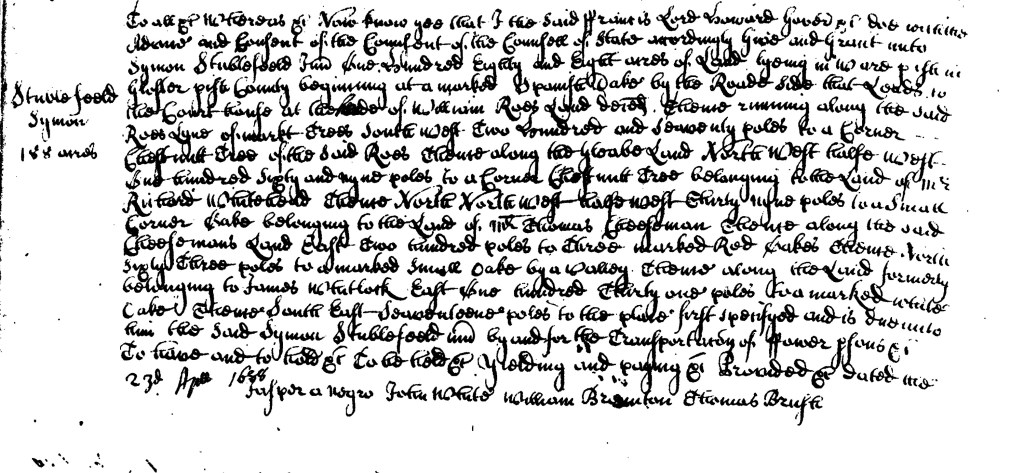 To all &c Whereas &c Now know yee that I the said Francis Lord Howard Gover &c doe with the
Advice and Consent of the Consent of the Counsell of State accordingly Give and Grant unto
Symon Stublefeeld One Hundred Eighty and Eight acres of Land lyeing in Ware psh in
Gloster County beginning at a marked Spanish Oake by the Roade side that Leades to
the Court house at the side of William Roes Land Thence running along the said
Roes Lyne of markt Trees South West Two Hundred and Seaventy poles to a Corner
Chestnutt Tree of the said Roes Thence along the Gleabe Land North West halfe West
One hundred Sixty and nyne poles to a Corner Chestnutt Tree belonging to the Land of Mr
Richard Whitehead Thence North North West halfe West Thirty nyne poles to a Small
Corner Oake belonging to the Land of Mr Thomas Cheesman Thence along the said
Cheesemans Land East Two hundred poles to Three marked Red Oakes Thence North
Sixty Three poles to a marked Small Oake by a Valley Thence along the Land formerly
belonging to James Whitlock East One hundred Thirty one poles to a marked White
Oake Thence South East Seaventeene poles to the place first specifyed and is due unto
him the said Symon Stublefeeld by and for the Transportation of Fower psons &c
To have and to hold &c To be held &c Yielding and paying &c Provided &c dated the
23d Aprll 1688
Jasper a negro John White William Brointon Thomas Brush
Stublefeeld
Symon
188 acres